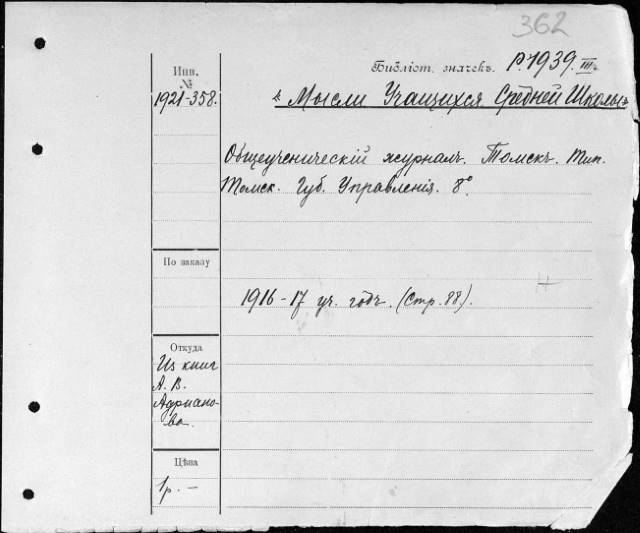 362
Инв.
№
1921-358.
Библіот. значекъ. Р. 1939. III.
« Мысли Учащихся Средней Школы»
Общеученическій журналъ. Томскъ. Тип.
Томск. Губ. Управленія. 8°.
По заказу
1916-17 уч. годъ. (Стр. 88).
Откуда
Из книг
А. В.
Адриано-
ва.
Цѣна
1р. –